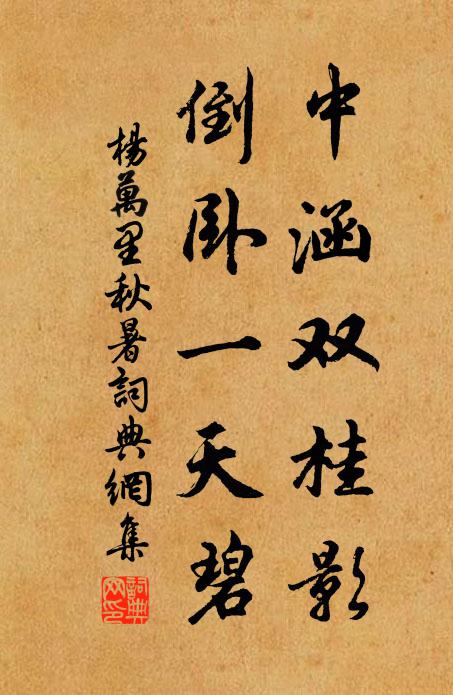 中涵双桂影
倒卧一天碧
楊萬里秋暑詞典網集
詞典网印